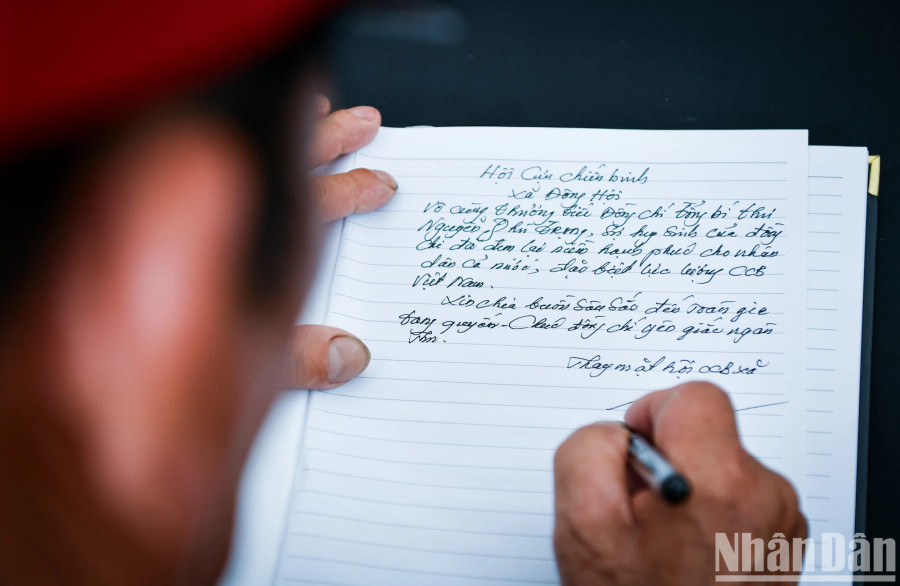 Hội Cựu chiến binh
Xã Đông Hội
Vô cùng thương tiếc Đồng chí tổng bí thư
Nguyễn Phú Trọng, sự hy sinh của đồng
chí đã đem lại niềm hạnh phúc cho nhân
dân cả nước, đặc biệt lực lượng CCB
Việt Nam.
Xin chia buồn sâu sắc đến toàn gia
tang quyến - Chúc đồng chí yên giấc ngàn
thu.
Thay mặt hội CCB xã
NhânDân